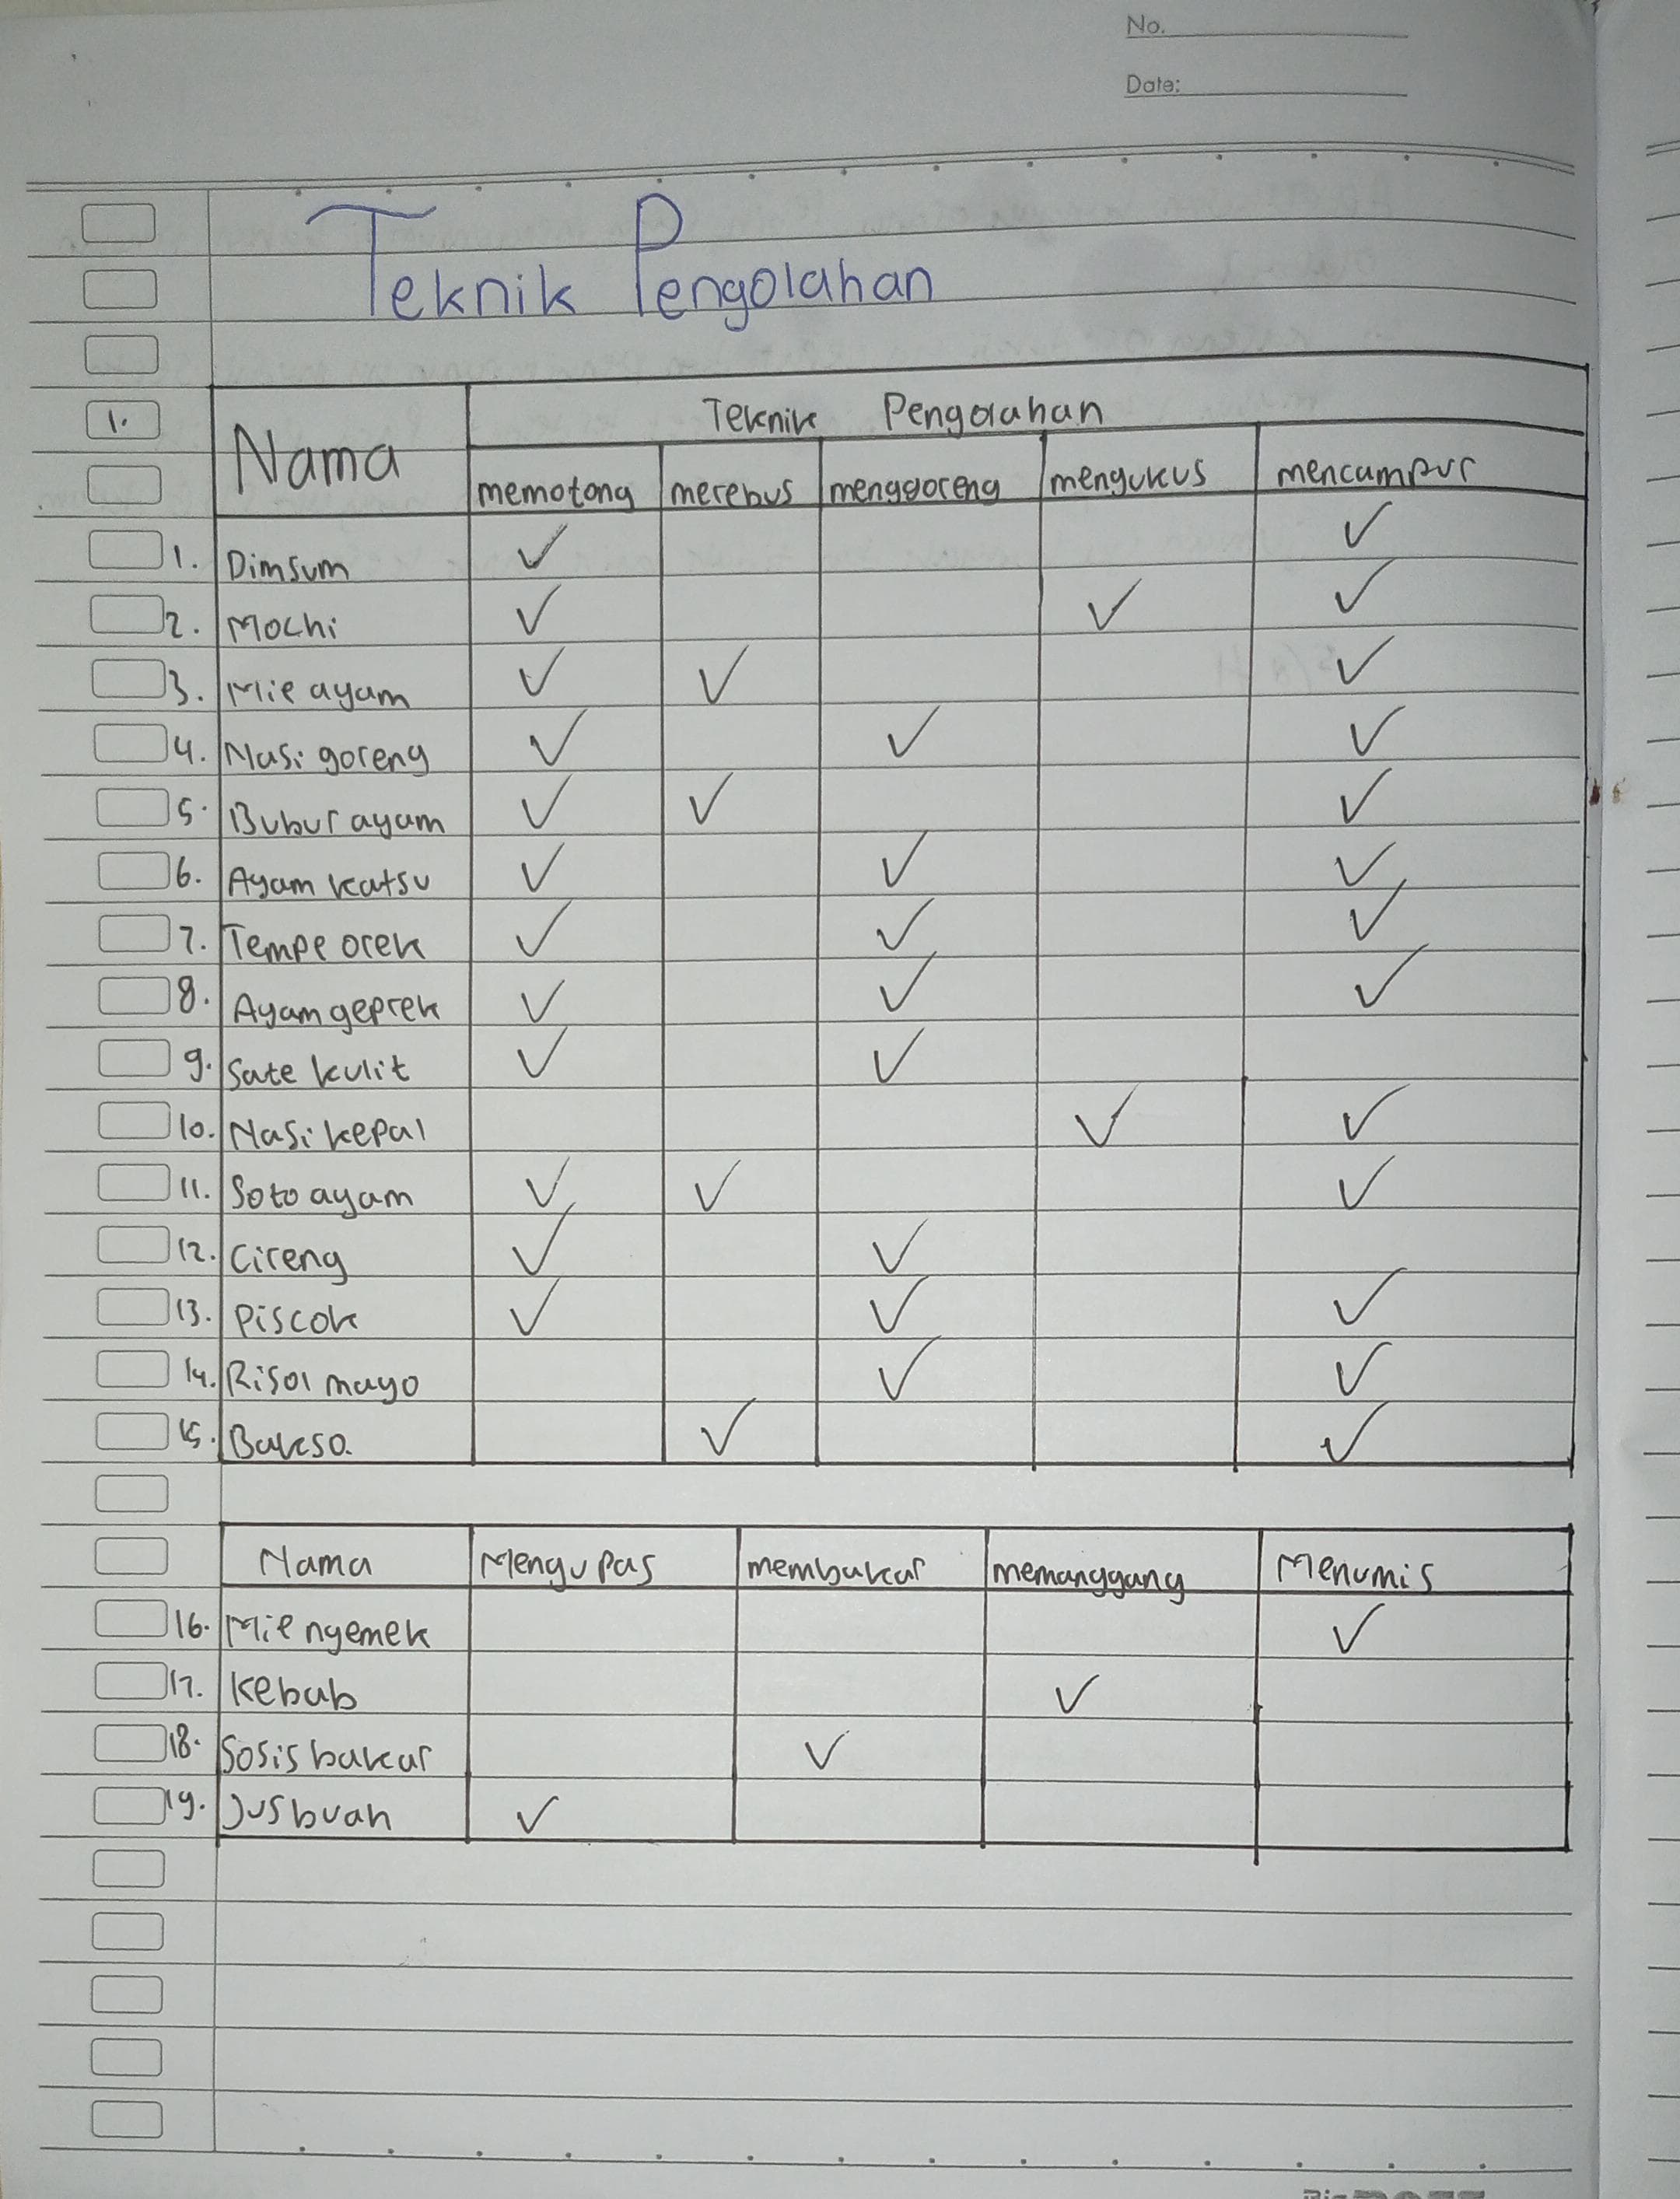 No.
Date:
Teknik Pengolahan
1.
Nama Teknik Pengolahan
memotong merebus menggoreng mengukus mencampur
1. Dimsum ✓ ✓
2. Mochi ✓ ✓ ✓
3. Mie ayam ✓ ✓ ✓
4. Nasi goreng ✓ ✓ ✓
5. Bubur ayam ✓ ✓ ✓
6. Ayam katsu ✓ ✓ ✓
7. Tempe orek ✓ ✓ ✓
8. Ayam geprek ✓ ✓ ✓
9. Sate kulit ✓ ✓
10. Nasi kepal ✓ ✓
11. Soto ayam ✓ ✓ ✓
12. Cireng ✓ ✓
13. Piscok ✓ ✓ ✓
14. Risol mayo ✓ ✓
15. Bakso. ✓ ✓
Nama Mengupas membakar memanggang Menumis
16. Mie nyemek ✓
17. Kebab ✓
18. Sosis bakar ✓
19. Jus buah ✓